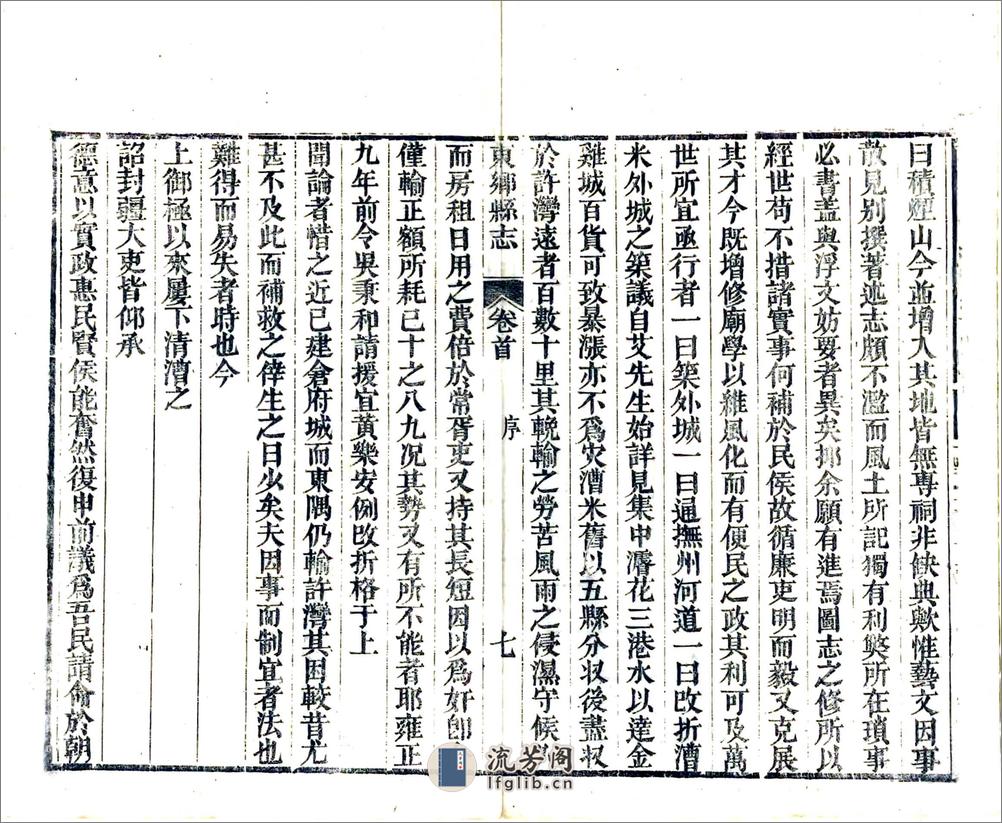 曰積煙山今並增入其地皆無專祠非缺典歟惟藝文因事
散見别撰著述志頗不濫而風土所記獨有利獘所在瑣事
必書葢與浮文妨要者異矣抑余願有進焉圖志之修所以
經世苟不措諸實事何補於民侯故循廉吏明而毅又克展
其才今既增修廟學以維風化而有便民之政其利可及萬
世所宜亟行者一曰築外城一曰通撫州河道一曰改折漕
米外城之築議自艾先生始詳見集中濬花三港水以達金
雞城百貨可致暴漲亦不爲灾漕米舊以五縣分収後盡収
於許灣遠者百數十里其輓輸之勞苦風雨之侵濕守候
東鄉縣志 卷首 序 七
而房租日用之費倍於常胥吏又持其長短因以爲奸卽
僅輸正額所耗已十之八九况其勢又有所不能者耶雍正
九年前令吳秉和請援宜黃樂安例改折格于上
聞論者惜之近已建倉府城而東隅仍輸許灣其困較昔尤
甚不及此而補救之倖生之日少矣夫因事而制宜者法也
難得而易失者時也今
上御極以來屢下清漕之
詔封疆大吏皆仰承
德意以實政惠民賢侯能奮然復申前議爲吾民請侖於朝
流芳阁
lfglib.cn